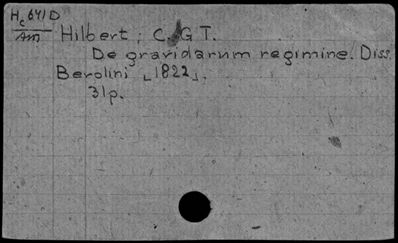 Hc 641 D
Am
Hilbert, C. G T.
De gravidarum regimine. Diss.
Berolini ⌞1822⌟.
31p.